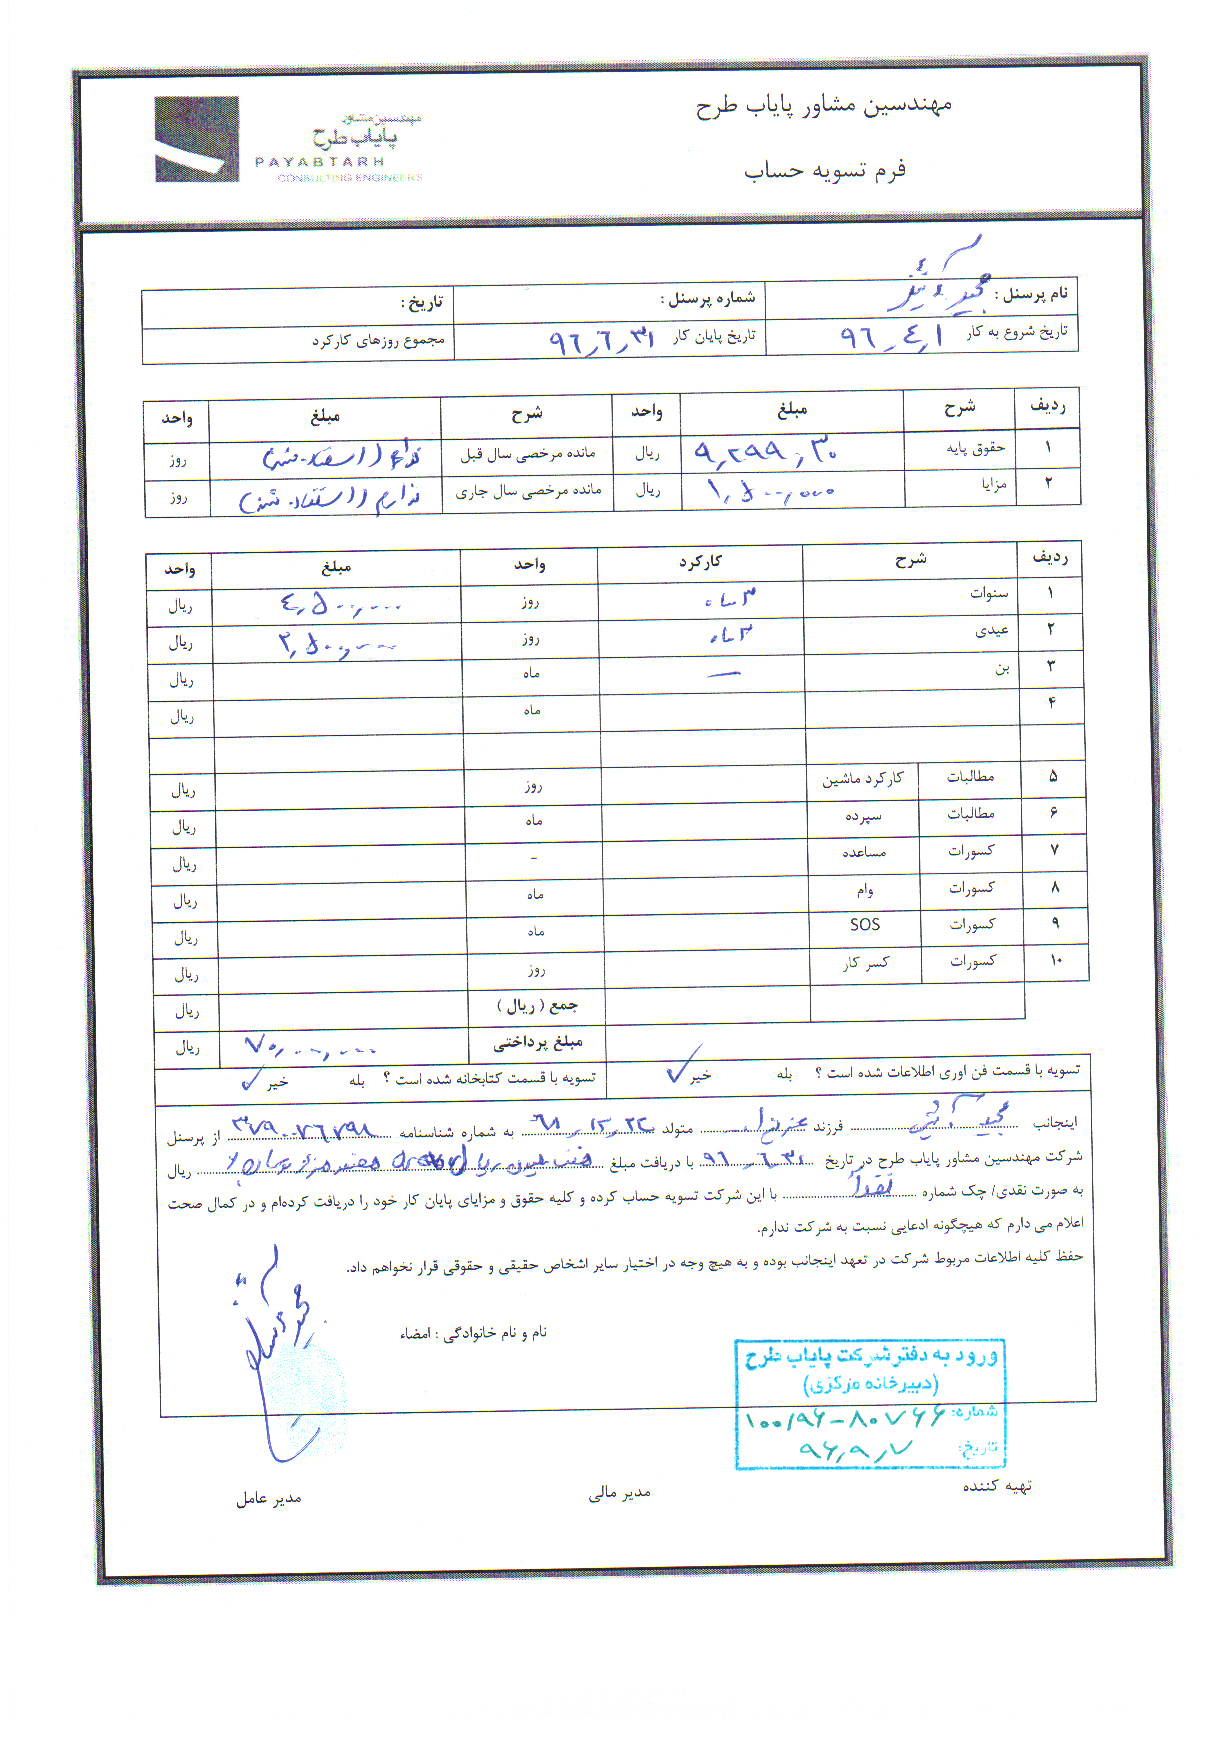 مهندسین مشاور پایاب طرح
مهندسین مشاور
پایاب طرح
PAYABTARH
CONSULTING ENGINEERS
فرم تسویه حساب
نام پرسنل : مجید شماره پرسنل : تاریخ :
تاریخ شروع به کار ۹۶٫۴٫۱ تاریخ پایان کار ۹۶٫۶٫۳۱ مجموع روزهای کارکرد
ردیف شرح مبلغ واحد شرح مبلغ واحد
۱ حقوق پایه ۹٫۲۹۹٫۰۳۰ ریال مانده مرخصی سال قبل ندارم (استفاده شد) روز
۲ مزایا ۱٫۵۰۰٫۰۰۰ ریال مانده مرخصی سال جاری ندارم (استفاده شد) روز
ردیف شرح کارکرد واحد مبلغ واحد
۱ سنوات ۳ ماه روز ۴٫۵۰۰٫۰۰۰ ریال
۲ عیدی ۳ ماه روز ۲٫۵۰۰٫۰۰۰ ریال
۳ بن — ماه ریال
۴ ماه ریال
۵ مطالبات کارکرد ماشین روز ریال
۶ مطالبات سپرده ماه ریال
۷ کسورات مساعده - ریال
۸ کسورات وام ماه ریال
۹ کسورات SOS ماه ریال
۱۰ کسورات کسر کار روز ریال
جمع ( ریال ) ریال
مبلغ پرداختی ۷۰٫۰۰۰٫۰۰۰ ریال
تسویه با قسمت فن اوری اطلاعات شده است ؟ بله خیر ✓ تسویه با قسمت کتابخانه شده است ؟ بله خیر ✓
اینجانب مجید فرزند متولد ۶۸٫۱۲٫۲۲ به شماره شناسنامه ۳۷۹۰۰۷۶۷۹۸ از پرسنل
شرکت مهندسین مشاور پایاب طرح در تاریخ ۹۶٫۶٫۳۱ با دریافت مبلغ هفت میلیون ریال ریال
به صورت نقدی/ چک شماره نقداً با این شرکت تسویه حساب کرده و کلیه حقوق و مزایای پایان کار خود را دریافت کرده‌ام و در کمال صحت
اعلام می دارم که هیچگونه ادعایی نسبت به شرکت ندارم.
حفظ کلیه اطلاعات مربوط شرکت در تعهد اینجانب بوده و به هیچ وجه در اختیار سایر اشخاص حقیقی و حقوقی قرار نخواهم داد.
نام و نام خانوادگی : امضاء
ورود به دفتر شرکت پایاب طرح
(دبیرخانه مرکزی)
شماره: ۱۰۰/۹۶-۸۰۷۶۶
تاریخ: ۹۶٫۹٫۷
تهیه کننده مدیر مالی مدیر عامل